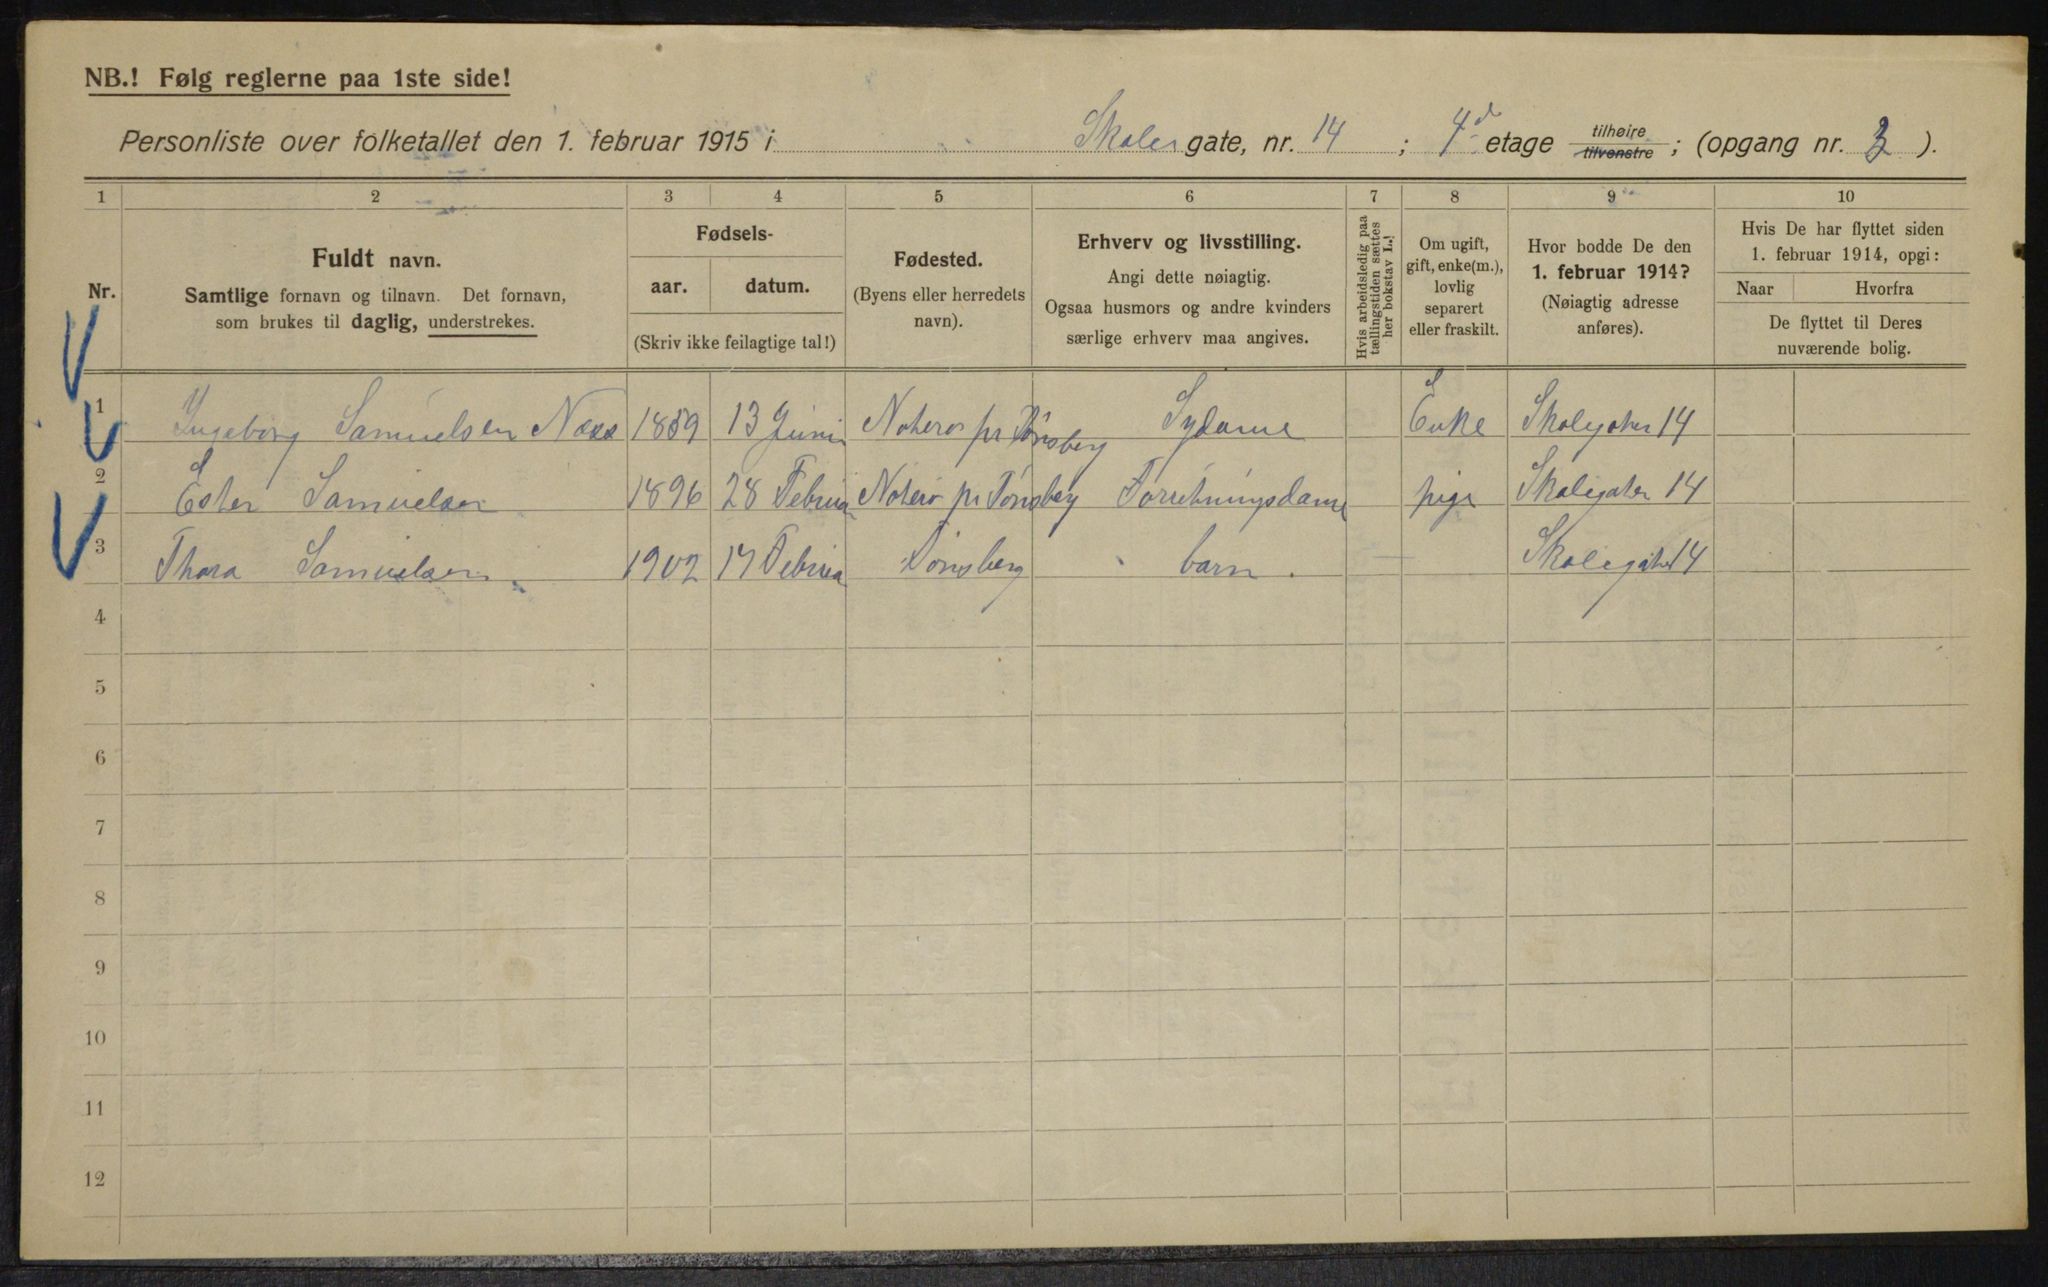 NB.! Følg reglerne paa 1ste side!
Personliste over folketallet den 1. februar 1915 i Skolen gate, nr. 14 ; 4d etage tilhøire tilvenstre ; (opgang nr. 3 ).
1 2 3 4 5 6 7 8 9 10
Nr.
Fuldt navn.
Samtlige fornavn og tilnavn. Det fornavn,
som brukes til daglig, understrekes.
Fødsels-
aar. datum.
(Skriv ikke feilagtige tal!)
Fødested.
(Byens eller herredets
navn).
Erhverv og livsstilling.
Angi dette nøiagtig.
Ogsaa husmors og andre kvinders
særlige erhverv maa angives.
Hvis arbeidsledig paa
tællingstiden sættes
her bokstav L.!
Om ugift,
gift, enke(m.),
lovlig
separert
eller fraskilt.
Hvor bodde De den
1. februar 1914?
(Nøiagtig adresse
anføres).
Hvis De har flyttet siden
1. februar 1914, opgi:
Naar Hvorfra
De flyttet til Deres
nuværende bolig.
1 Ingeborg Samuelsen Næss 1859 13 Juni Noterø pr Tönsberg Sydame Enke Skolegaten 14
2 Ester Samuelsen 1896 28 Februa Noterö pr Tönsberg Forretningsdame pige Skolegaten 14
3 Thora Samuelsen 1902 17 Februa Tönsberg barn. Skolegaten 14
4
5
6
7
8
9
10
11
12